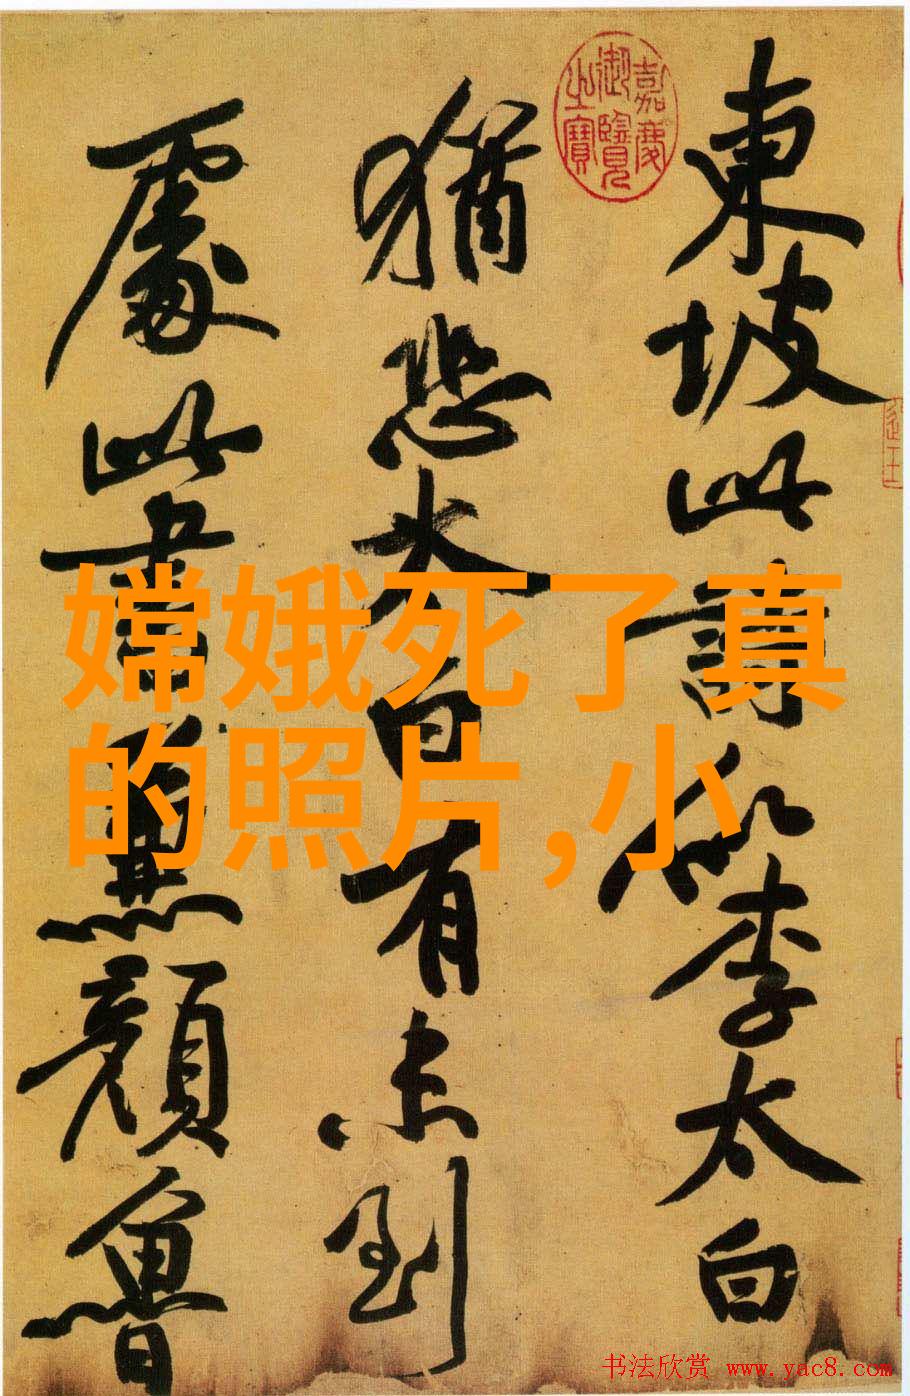 東坡此詩似李太白
嘉慶
御覽
之寶
猶恐太白有未到
處此書兼顏魯
嫦娥死了真
的照片,小
书法欣赏 www.yac8.com